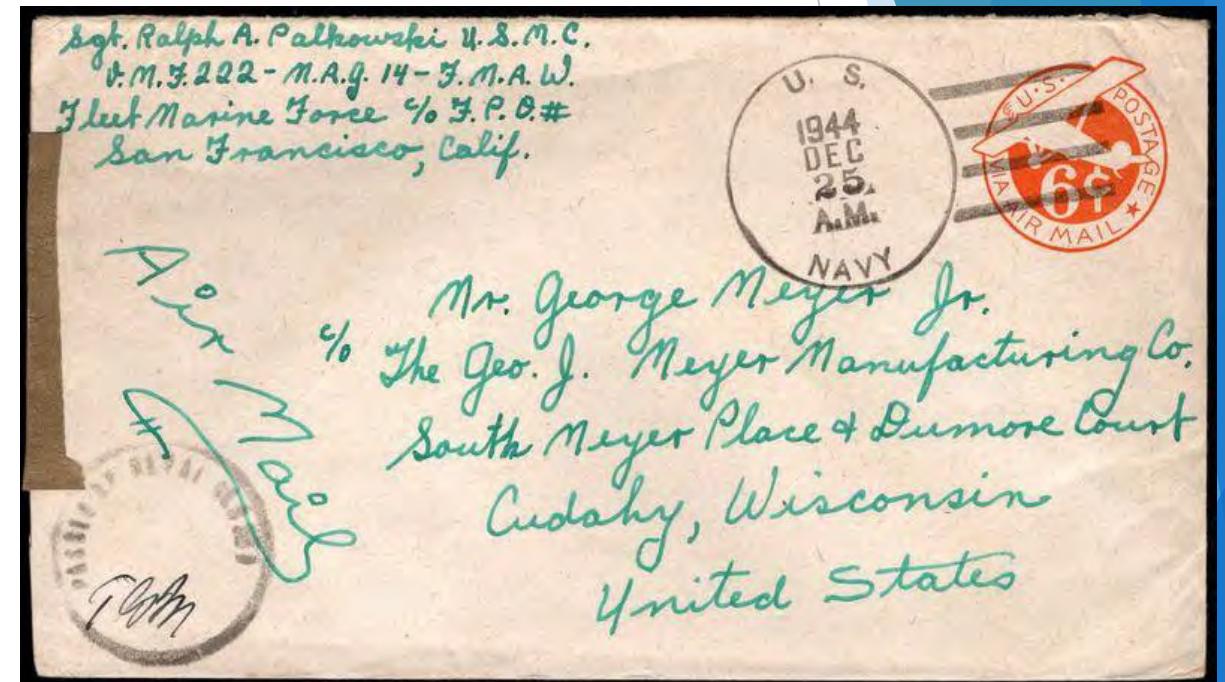 Sgt. Ralph A. Palkowski U.S.M.C.
V.M.F. 222 - M.A.G. 14 - F.M.A.W.
Fleet Marine Force c/o F.P.O.#
San Francisco, Calif.
U. S.
1944
DEC
25
A.M.
NAVY
U.S. POSTAGE
6¢
VIA AIR MAIL
Air Mail
Mr. George Meyer Jr.
c/o The Geo. J. Meyer Manufacturing Co.
South Meyer Place & Dumore Court
Cudahy, Wisconsin
United States
PASSED BY NAVAL CENSOR